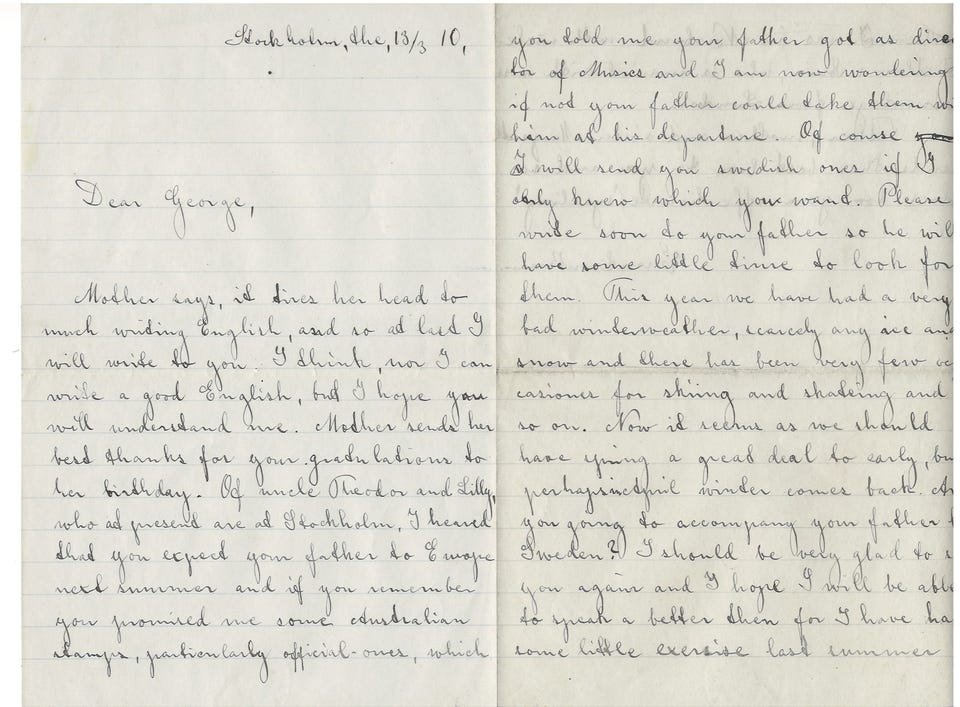 Stockholm, the, 13/3 10,
Dear George,
Mother says, it tires her head to
much writing English, and so at last I
will write to you. I think, nor I can
write a good English, but I hope you
will understand me. Mother sends her
best thanks for your gratulations to
her birthday. Of uncle Theodor and Lilly,
who at present are at Stockholm, I heared
that you expect your father to Europe
next summer and if you remember
you promised me some Australian
stamps, particularly official-ones, which
you told me your father got as direc
tor of Musics and I am now wondering
if not your father could take them wi
him at his departure. Of course
I will send you swedish ones if I
only knew which you want. Please
write soon to your father so he wil
have some little time to look for
them. This year we have had a very
bad winterweather, scarcely any ice and
snow and there has been very few oc
casions for skiing and skateing and
so on. Now it seems as we should
have spring a great deal to early, bu
perhaps winter comes back. Ar
you going to accompany your father t
Sweden? I should be very glad to s
you again and I hope I will be able
to speak a better then for I have ha
some little exersise last summer